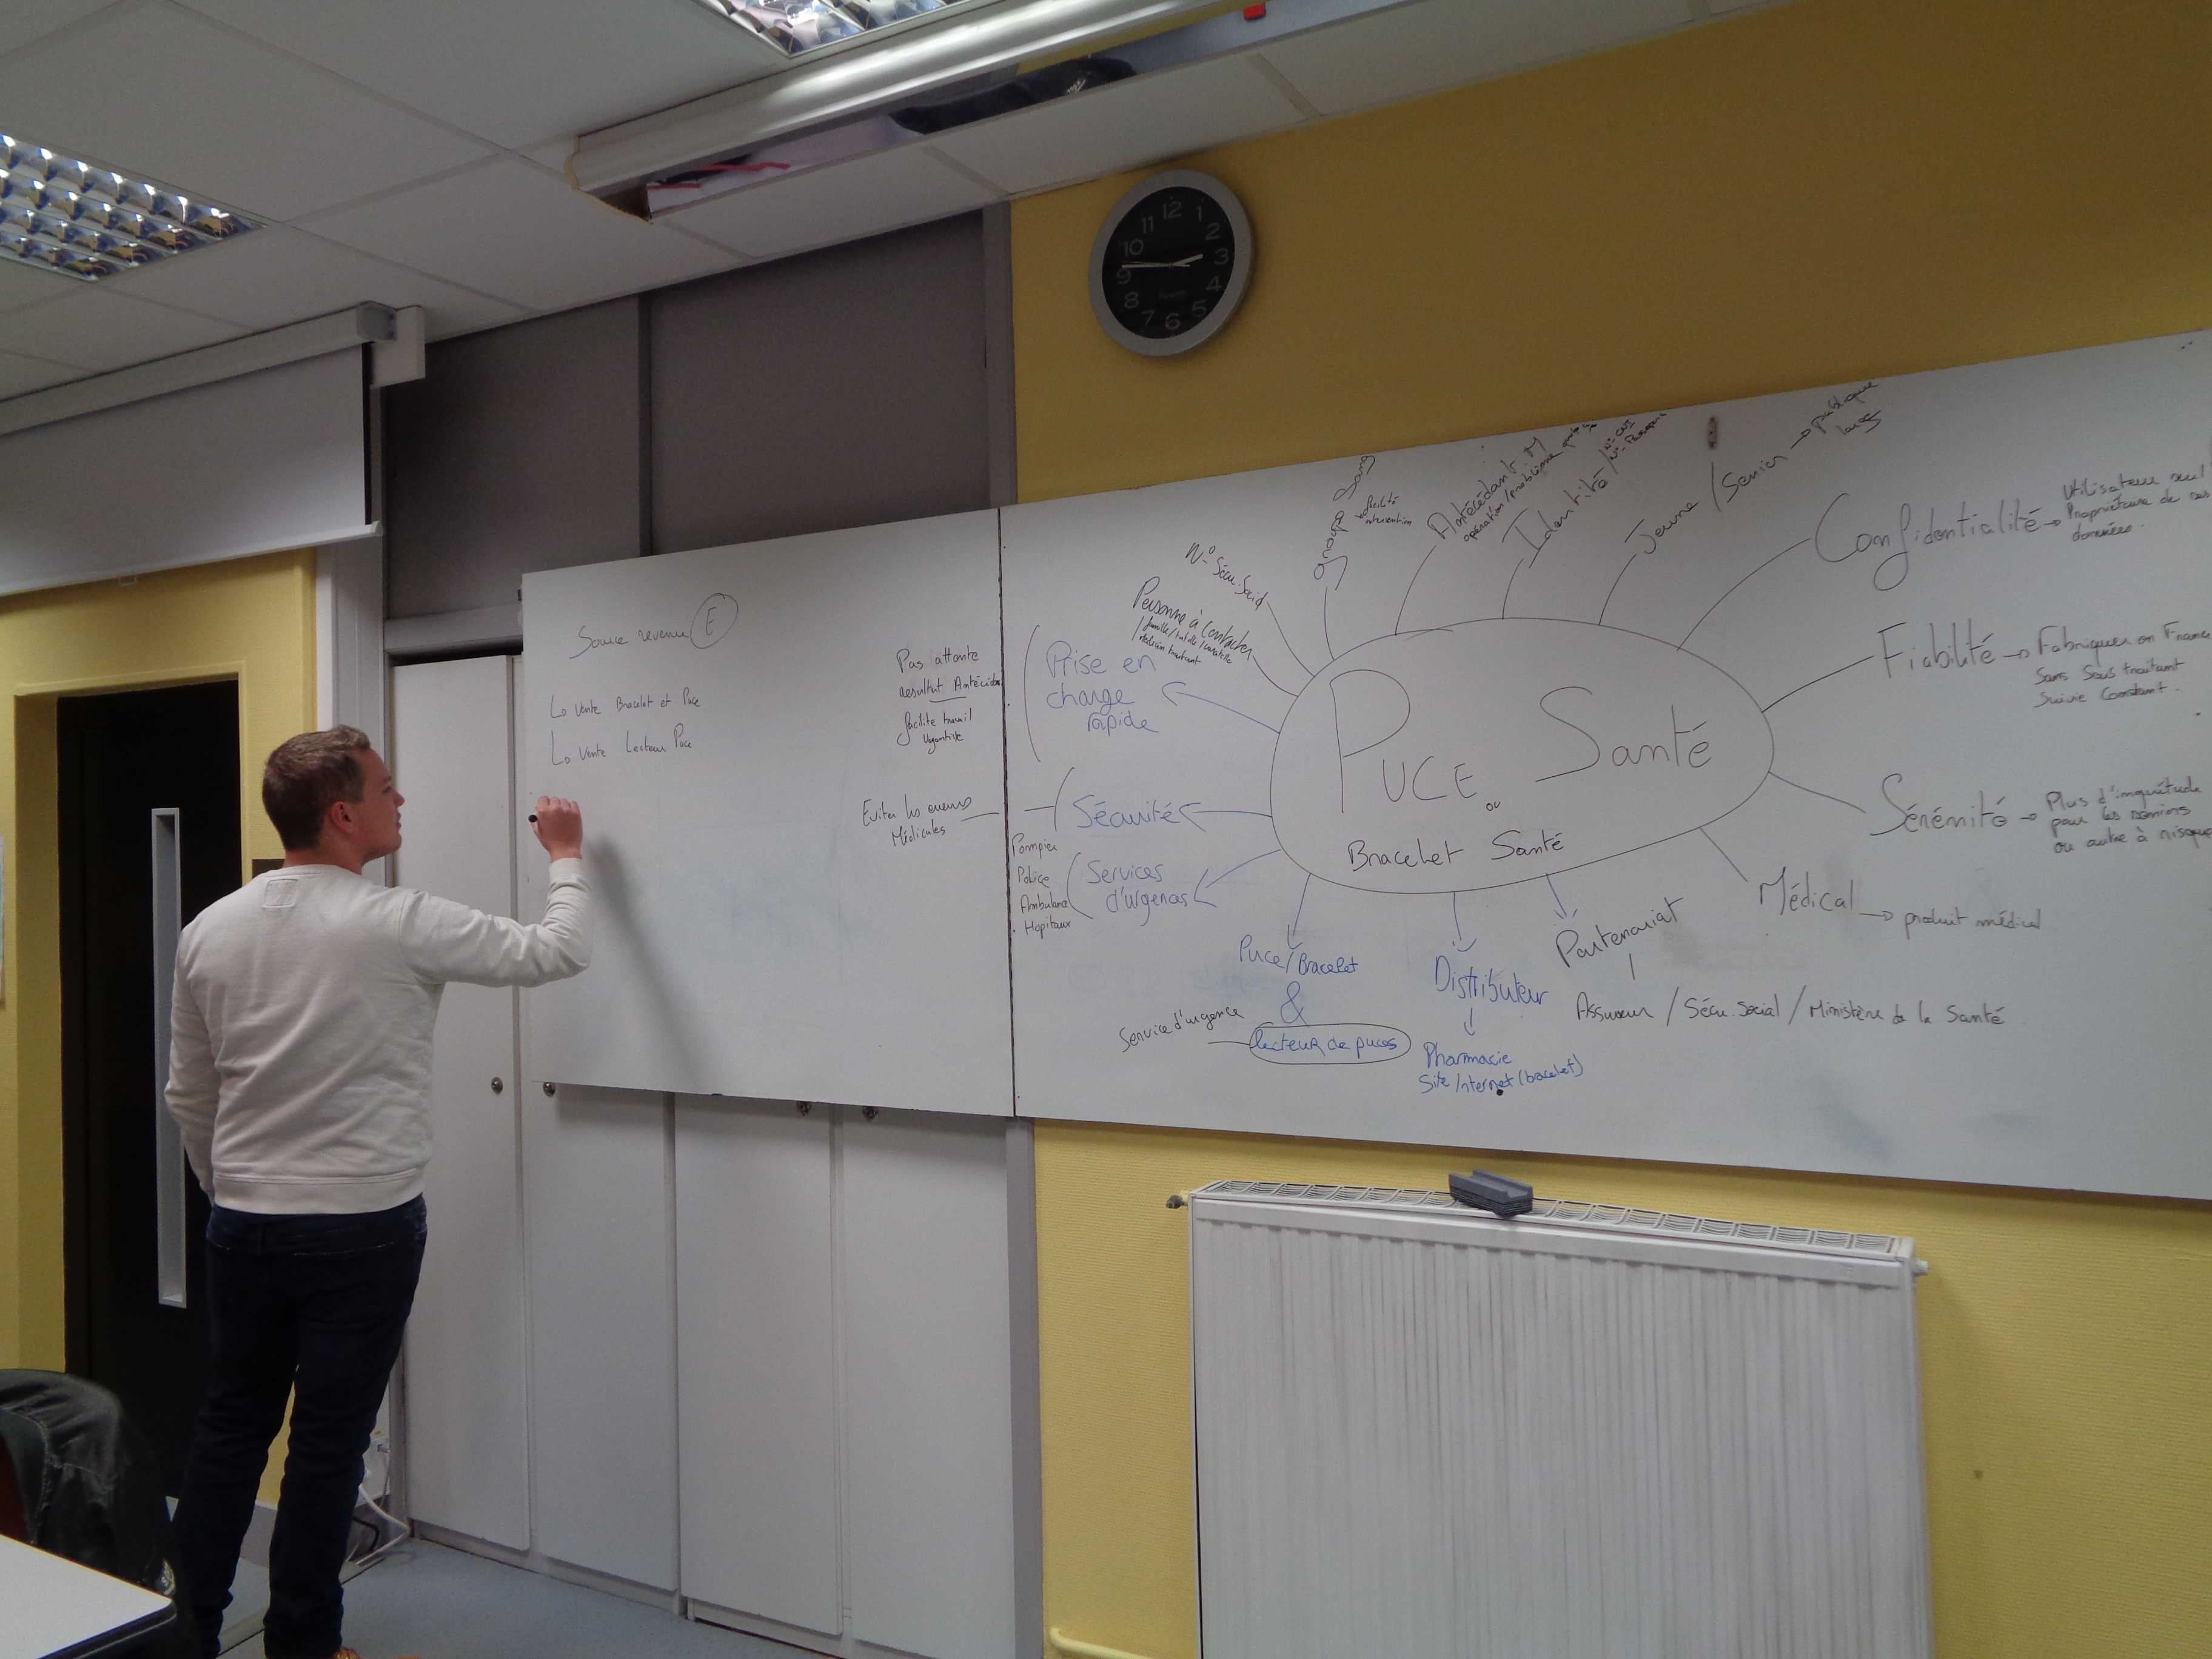 12
1
2
3
4
5
6
7
8
9
10
11
Source revenu E
Lo Vente Bracelet et Puce
Lo Vente Lecteur Puce
Pas attente
resultat Antécédan
facilite travail
Urgentiste
Eviter les erreurs
Médicales
Prise en
charge
rapide
Sécurité
Pompier
Police
Ambulance
Hopitaux
Services
d'urgences
N° Sécu. Social
Personne à contacter
famille/tutelle/curatelle
médecin traitant
groupe Sang
facilité
intervention
Antécédant. M
opération/problème
Identité/N° CNI
Jeune/Senior → publique
large
Confidentialité →
Utilisateur seul
Propriétaire de ses
données.
Fiabilité → Fabriquer en France
Sans Sous traitant
Suivie Constant.
Sérénité → Plus d'inquiétude
pour les séniors
ou autre à risque
Médical → produit médical
PUCE Santé
ou
Bracelet Santé
Puce/Bracelet
&
Service d'urgence
lecteur de puces
Distributeur
Pharmacie
Site Internet (bracelet)
Partenariat
Assureur / Sécu. Social / Ministère de la Santé